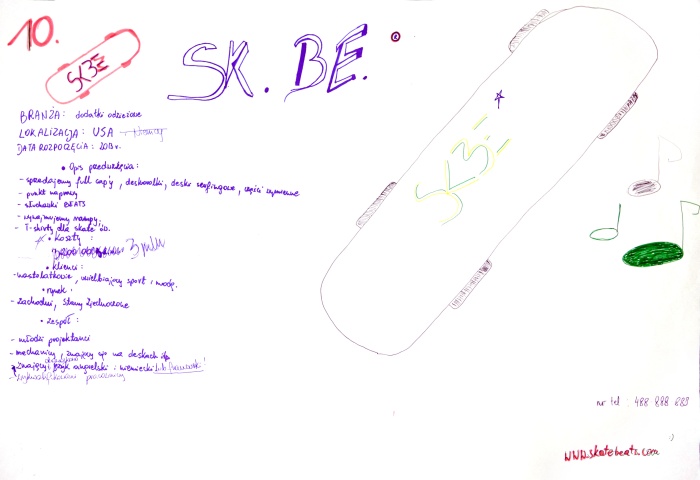 10.
SKBE
SK. BE.
BRANŻA: dodatki odzieżowe
LOKALIZACJA: USA
DATA ROZPOCZĘCIA: 2013 r.
• Opis przedsięwzięcia:
- sprzedajemy full cap'y, deskorolki, deski surfingowe, części wymienne
- punkt naprawy
- słuchawki BEATS
- wynajmujemy rampy,
- T-shirty dla skate
• Koszty:
3 mln
• klienci:
- nastolatkowie, uwielbiający sport i modę.
• rynek:
- Zachodni, Stany Zjednoczone
• Zespół:
- młodzi projektanci
- mechanicy, znający się na deskach
- znający język angielski i niemiecki lub francuski
- pracownicy
SKBE
nr tel: 488 888 888
:)
www.skatebeats.com